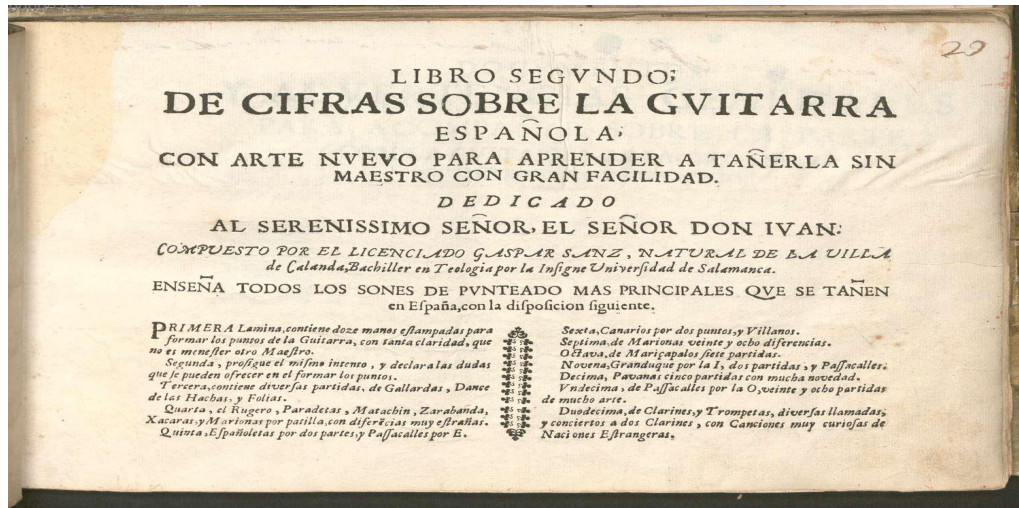 20
LIBRO SEGVNDO;
DE CIFRAS SOBRE LA GVITARRA
ESPAÑOLA;
CON ARTE NVEVO PARA APRENDER A TAÑERLA SIN
MAESTRO CON GRAN FACILIDAD.
DEDICADO
AL SERENISSIMO SEÑOR, EL SEÑOR DON IVAN:
COMPUESTO POR EL LICENCIADO GASPAR SANZ, NATURAL DE LA VILLA
de Calanda,Bachiller en Teologia por la Insigne Universidad de Salamanca.
ENSEÑA TODOS LOS SONES DE PVNTEADO MAS PRINCIPALES QVE SE TAÑEN
en España,con la disposicion siguiente.
PRIMERA Lamina,contiene doze manos estampadas para
formar los puntos de la Guitarra, con tanta claridad, que
no es menester otro Maestro.
Segunda, prosigue el mismo intento, y declara las dudas
que se pueden ofrecer en el formar los puntos.
Tercera,contiene diversas partidas, de Gallardas, Dance
de las Hachas, y Folias.
Quarta, el Rugero, Paradetas, Matachin, Zarabanda,
Xacaras,y Marionas por patilla,con diferẽcias muy estrañas.
Quinta,Españoletas por dos partes,y Passacalles por E.
Sexta,Canarios por dos puntos,y Villanos.
Septima,de Marionas veinte y ocho diferencias.
Octava,de Mariçapalos siete partidas.
Novena,Granduque por la I, dos partidas, y Passacalles.
Decima, Pavanas cinco partidas con mucha novedad.
Vndecima, de Passacalles por la O,veinte y ocho partidas
de mucho arte.
Duodecima,de Clarines,y Trompetas, diversas llamadas;
y conciertos a dos Clarines, con Canciones muy curiosas de
Naciones Estrangeras.